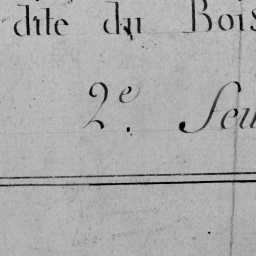 dite du Bois
2.e Feu